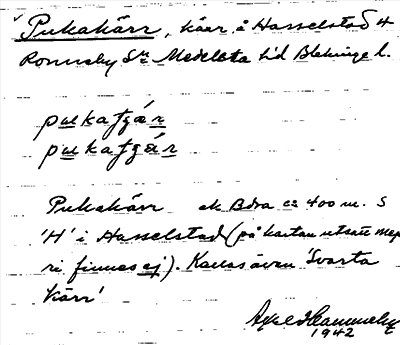 Pukakärr, kärr å Hasselstad H
Ronneby Sn Medelsta hd Blekinge l.
pukatjär
pukatjär
Pukakärr ek Bdra ca 400 m. S
'H' i Hasselstad (på kartan utsatt men
finnes ej). Kallas även 'Svarta
Kärr'
1942